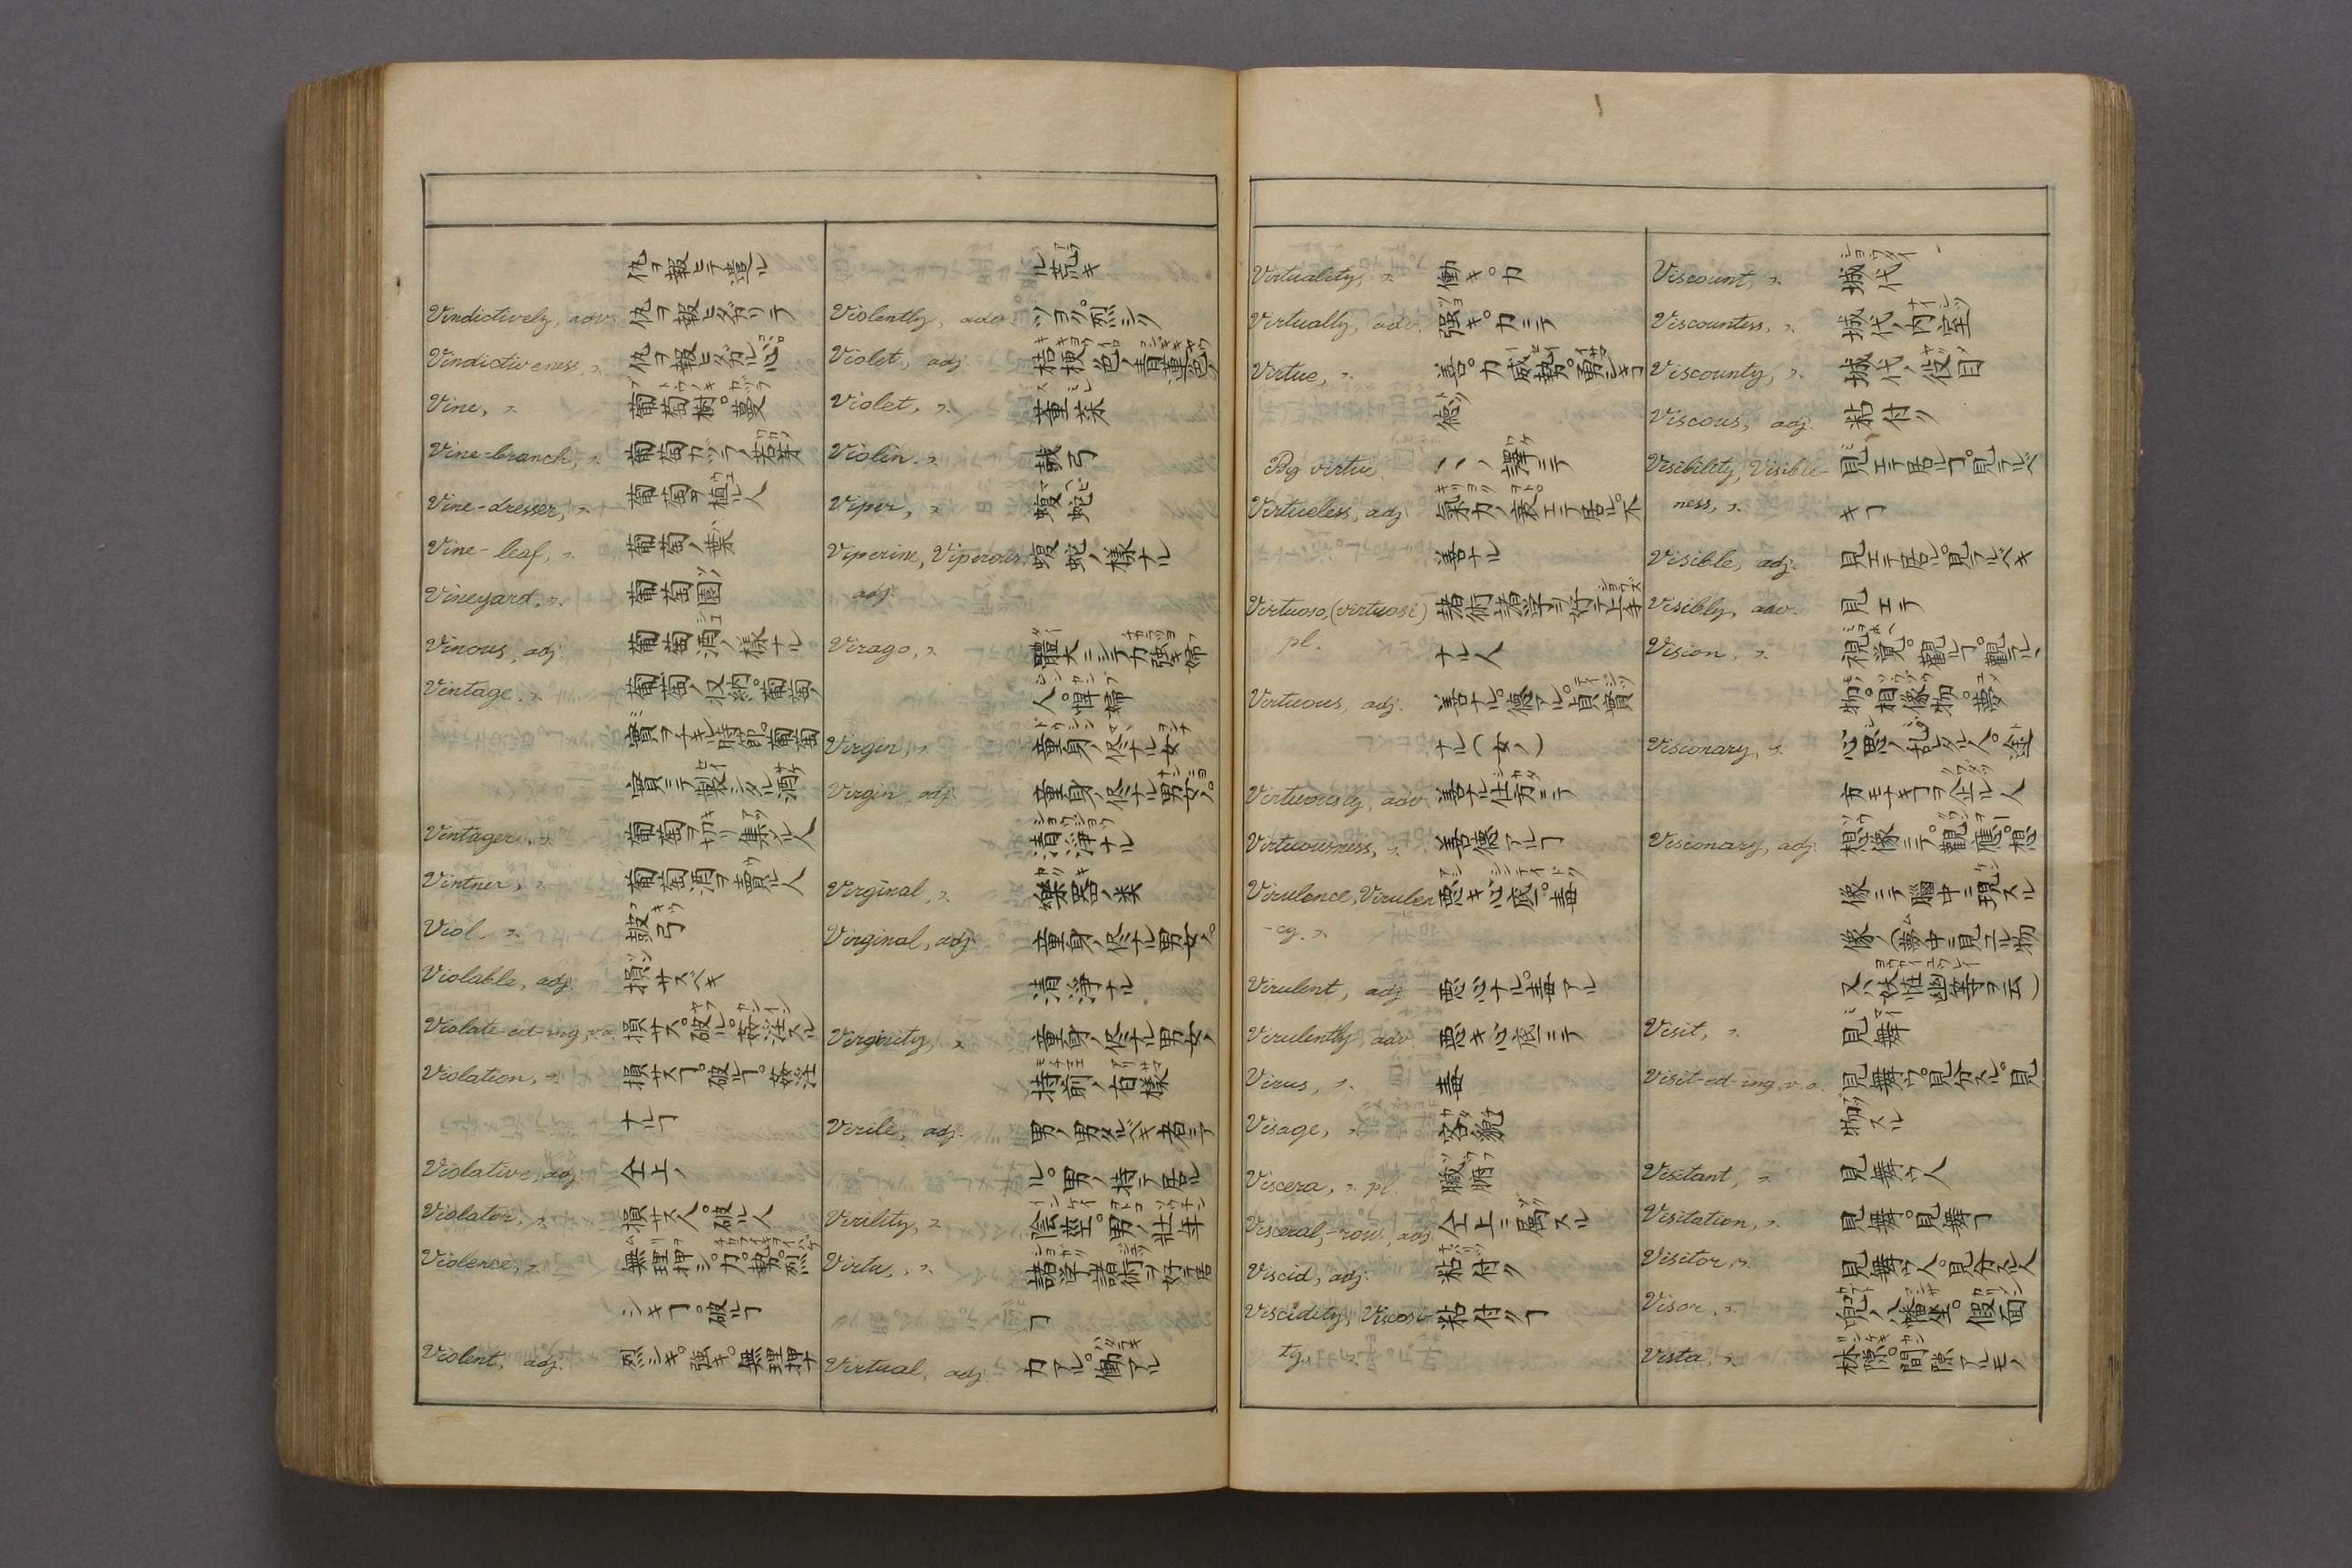 仇ヲ報ヒテ遣ル
Vindictively, adv. 仇ヲ報ヒタガリテ
Vindictiveness, n. 仇ヲ報ヒタガル心
Vine, n. 葡萄樹。蔓
Vine-branch, n. 葡萄カヅラノ若芽
Vine-dresser, n. 葡萄ヲ植ル人
Vine-leaf, n. 葡萄ノ葉
Vineyard, n. 葡萄園
Vinous, adj. 葡萄酒ノ様ナル
Vintage, n. 葡萄ノ収納。葡萄ノ
實ヲチギル時節。葡萄
實ニテ製シタル酒
Vintager, n. 葡萄ヲ切リ集ル人
Vintner, n. 葡萄酒ヲ賣ル人
Viol, n. 鼓弓
Violable, adj. 損サスベキ
Violate-ed-ing, v.a. 損サス。破ル。姦淫スル
Violation, n. 損サスヿ。破ルヿ。姦淫
ナルヿ
Violative, adj. 仝上ノ
Violator, n. 損サス人。破ル人
Violence, n. 無理押シ。力。勢。烈
シキヿ。破ルヿ
Violent, adj. 烈シキ。強キ。無理押ナ
ル荒キ
Violently, adv. ツヨク。烈シク
Violet, adj. 桔梗色ノ青蓮色ノ
Violet, n. 菫菜
Violin, n. 鼓弓
Viper, n. 蝮蛇
Viperine, Viperous, 蝮蛇ノ様ナル
adj.
Virago, n. 體大ニシテ力強キ婦
人。悍婦
Virgin, n. 童身ノ侭ナル女
Virgin, adj. 童身ノ侭ナル男女ノ。
清淨ナル
Virginal, n. 樂器ノ类
Virginal, adj. 童身ノ侭ナル男女ノ。
清淨ナル
Virginity, n. 童身ノ侭ナル男女ノ
持前ノ有様
Virile, adj. 男ノ男タルベキ者ニテ
ル。男ノ持テ居ル
Virility, n. 陰莖。男ノ壮年
Virtu, n. 諸学諸術ヲ好テ居
ヿ
Virtual, adj. 力アル。働アル
Virtuality, n. 働キ。力
Virtually, adv. 強キ。力ニテ
Virtue, n. 善。力威勢。勇シキヿ
德
By virtue. 〵ノ譯ニテ
Virtueless, adj. 氣力ノ衰エテ居ル。不
善ナル
Virtuoso, (virtuosi) 諸術諸学ヲ好テ上手
pl. ナル人
Virtuous, adj. 善ナル。德アル。貞實
ナル(女ノ)
Virtuously, adv. 善ナル仕方ニテ
Virtuousness, n. 善德アルヿ
Virulence, Virulen 悪キ心底。毒
-cy. n.
Virulent, adj. 悪心ナル。毒アル
Virulently, adv. 悪キ心底ニテ
Virus, n. 毒
Visage, n. 容貌
Viscera, n. pl. 臓腑
Visceral,-rous, adj. 仝上ニ屬スル
Viscid, adj. 粘付ク
Viscidity, Viscosi 粘付クヿ
ty, n.
Viscount, n. 城代
Viscountess, n. 城代ノ内室
Viscounty, n. 城代ノ役目
Viscous, adj. 粘付ク
Visibility, Visible- 見エテ居ルヿ。見ラルベ
ness, n. キヿ
Visible, adj. 見エテ居ル。見ラルベキ
Visibly, adv. 見エテ
Vision, n. 視覚。觀ルヿ。觀ラル丶
物。想像物。夢
Visionary, n. 心思ノ乱タル人。途
方モナキヿヲ企ル人
Visionary, adj. 想像ニテ。觀應。想
像ニテ腦中ニ現スル
像ノ(夢中ニ見エル物
又ハ妖怪幽等ヲ云)
Visit, n. 見舞
Visit-ed-ing, v.a. 見舞ウ。見分スル。見
物スル
Visitant, n. 見舞ウ人
Visitation, n. 見舞。見舞ヿ
Visitor, n. 見舞ウ人。見分スル人
Visor, n. 兜ノ八幡座。假面
Vista, n. 林隙。間隙アルモノ